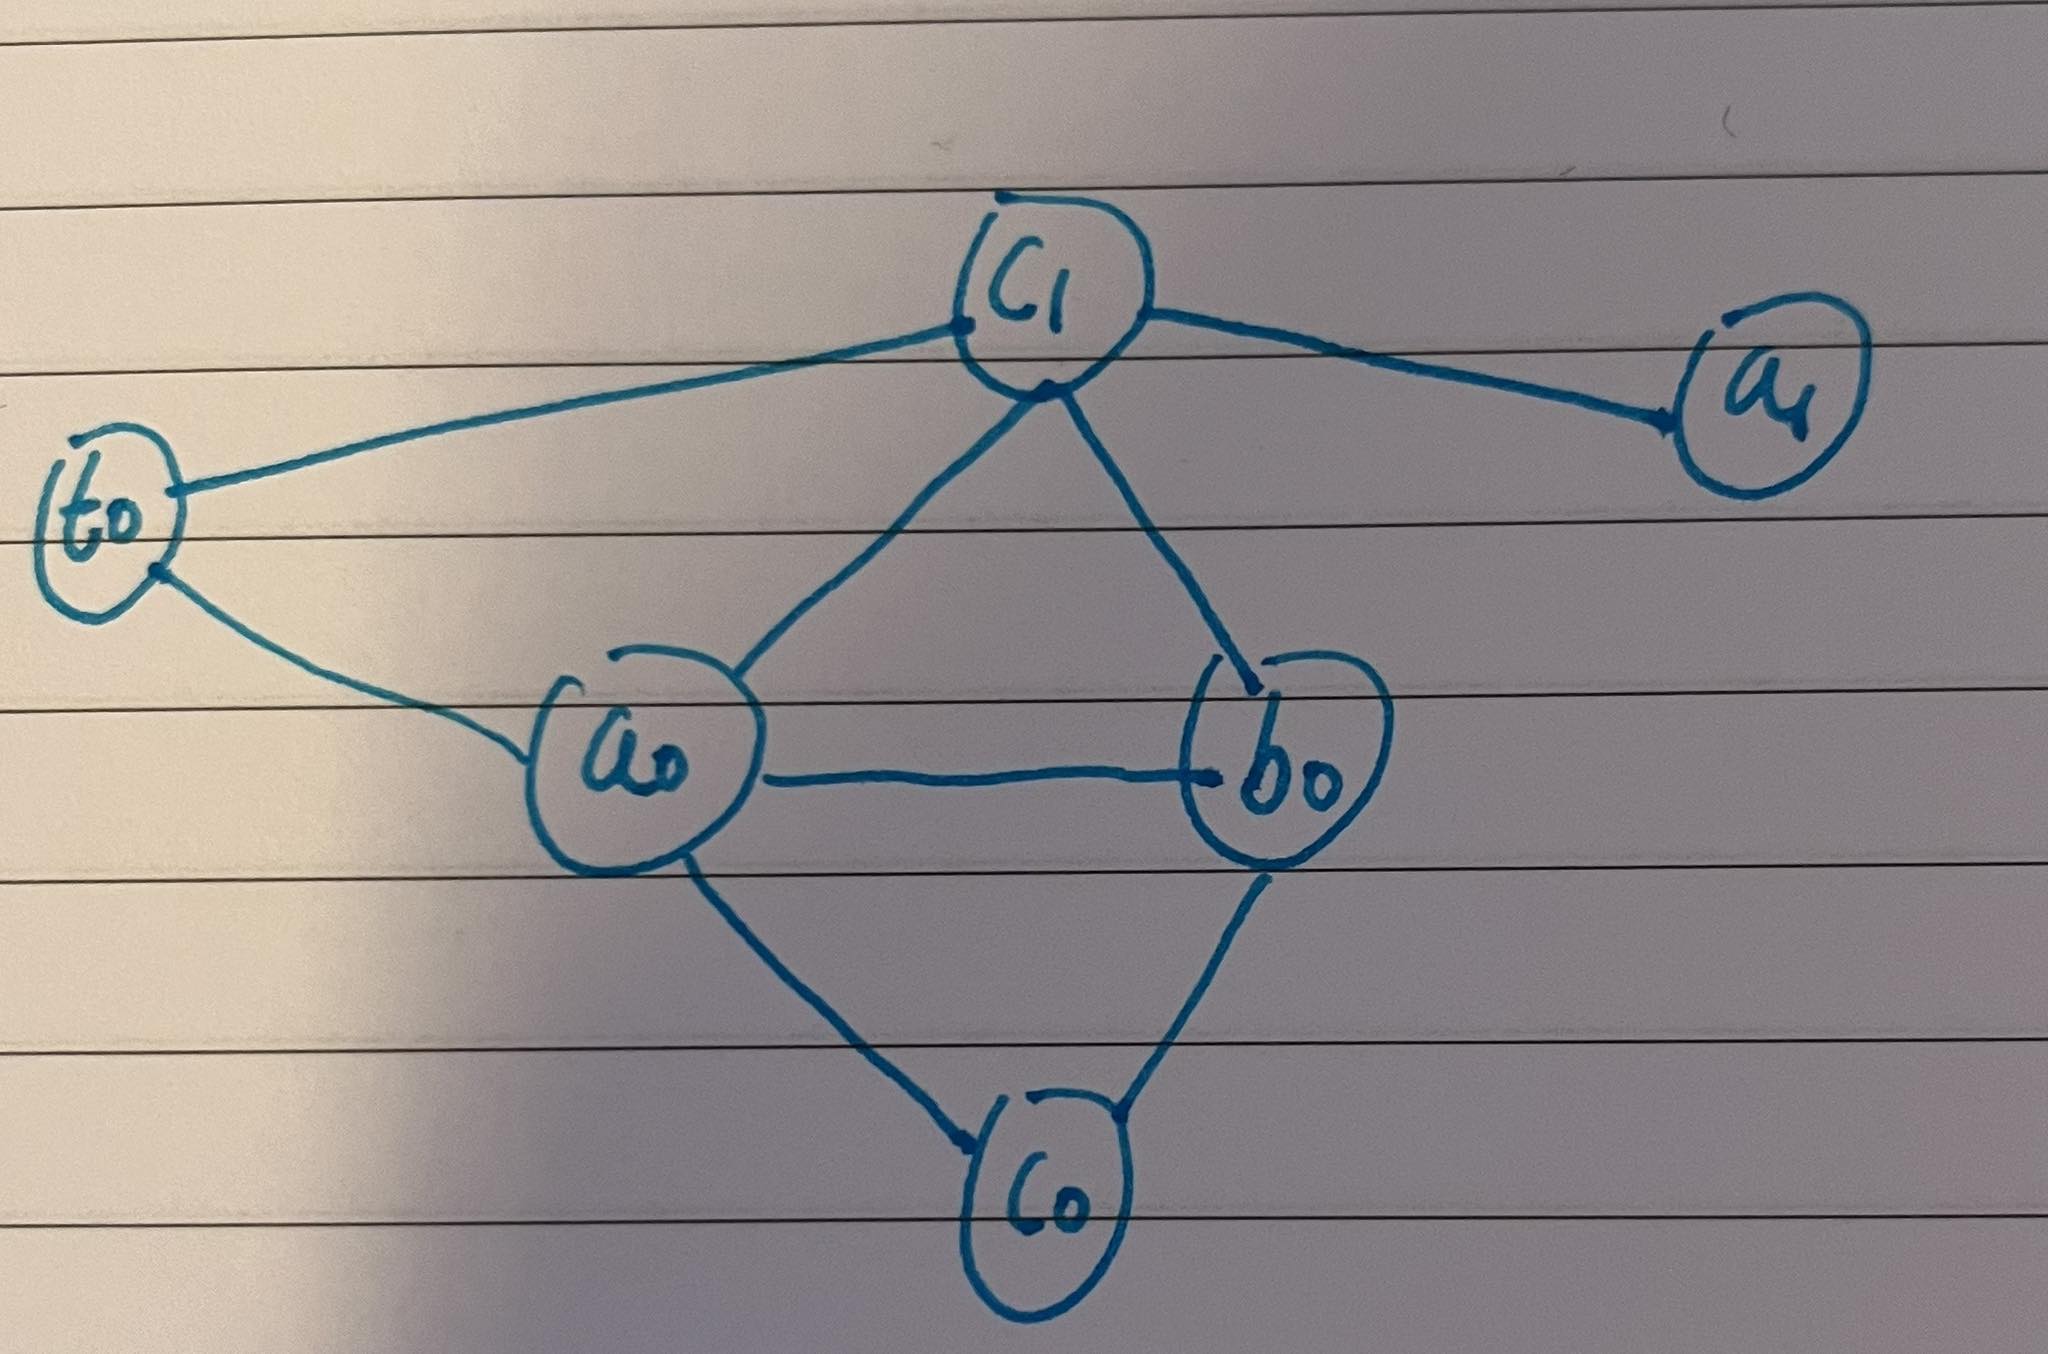 C1
a1
t0
a0
b0
C0